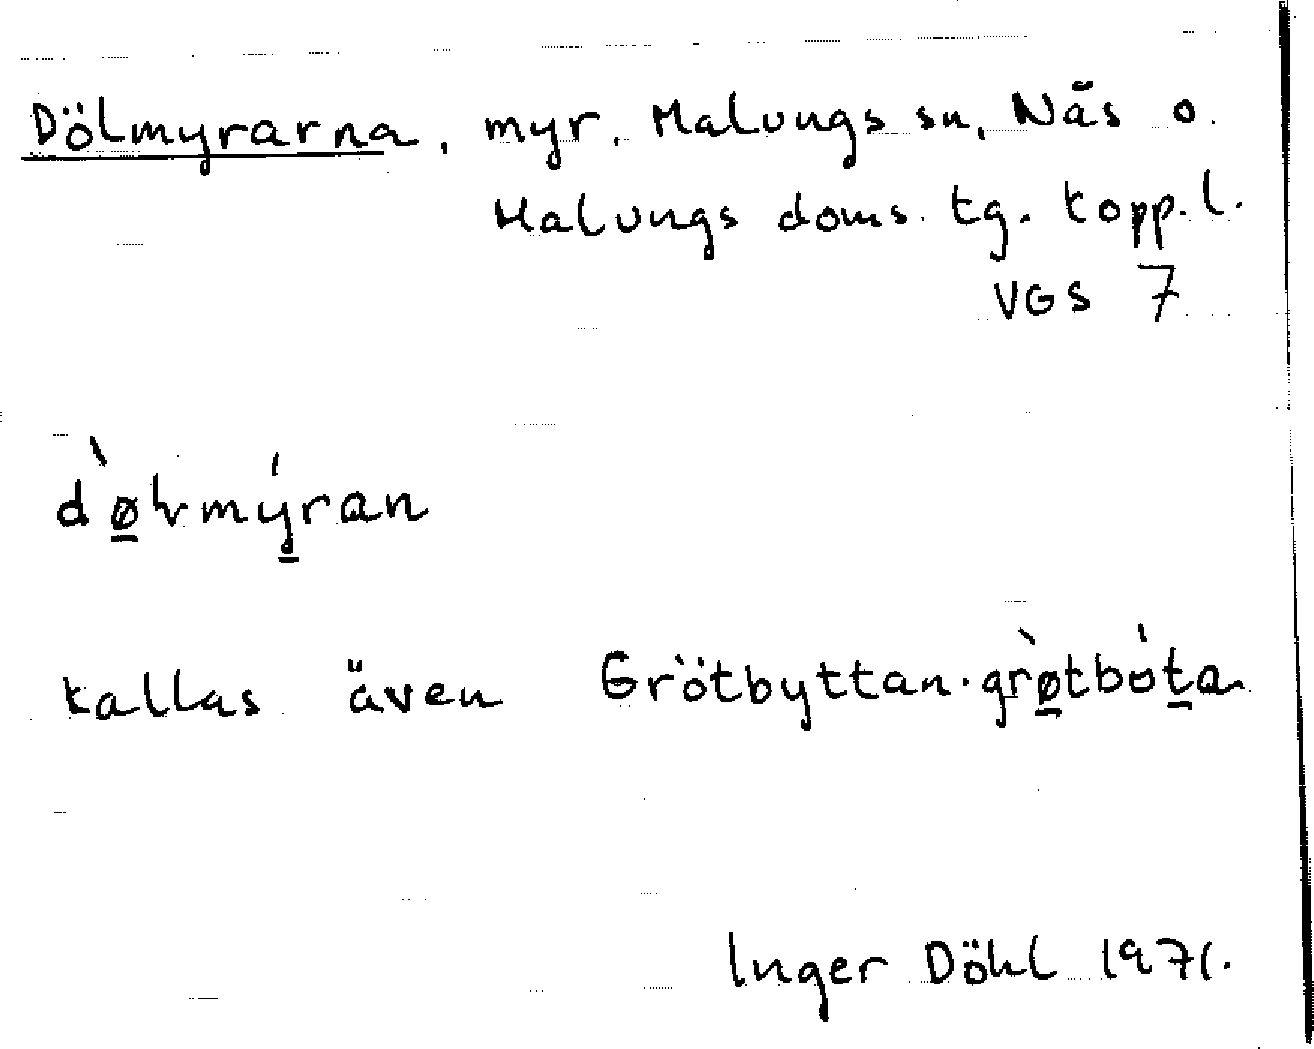 Dölmyrarna, myr, Malungs sn, Näs o.
Malungs doms. tg. topp.l.
VGS 7
dø̲̀lmý̲ran
kallas även Grötbyttan. grø̲̀tbót̲a
Inger Döhl 1971.